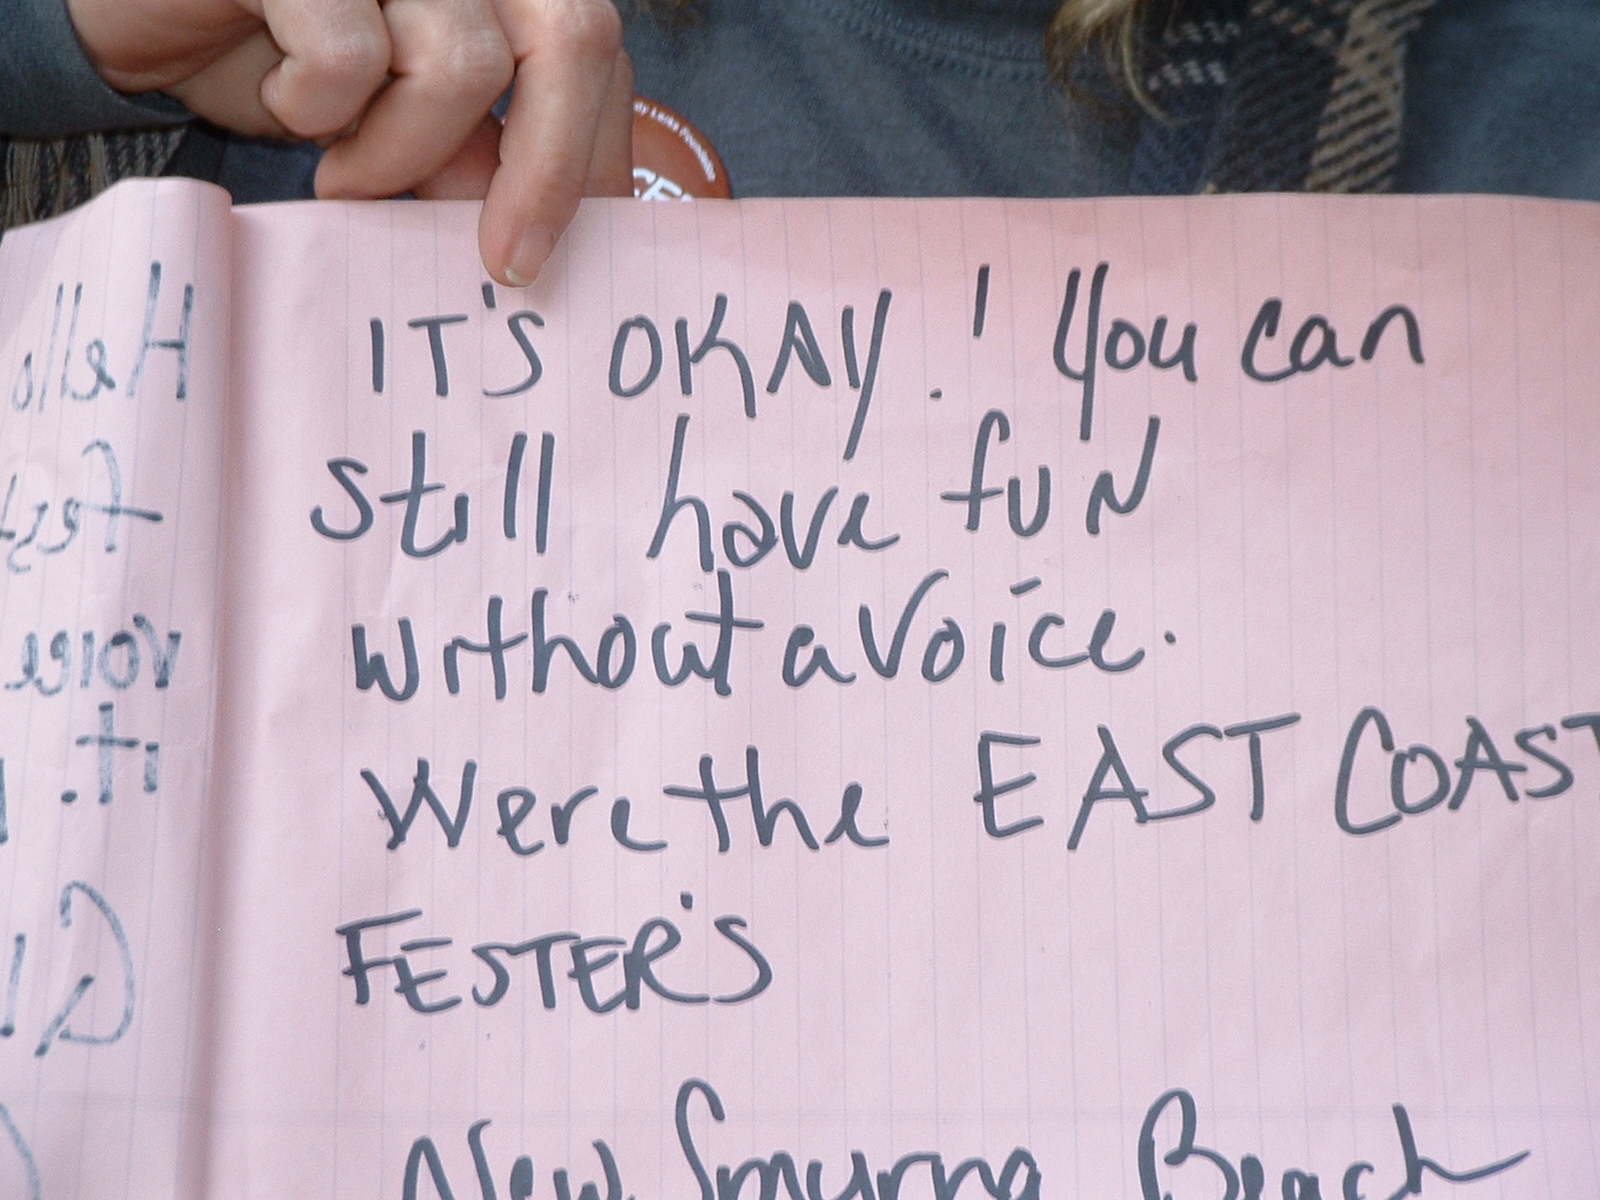 IT'S OKAY! You can
still have fuN
without a Voice.
Were the EAST COAST
FESTER'S
New Smyrna Beach
Hello
voice
it.